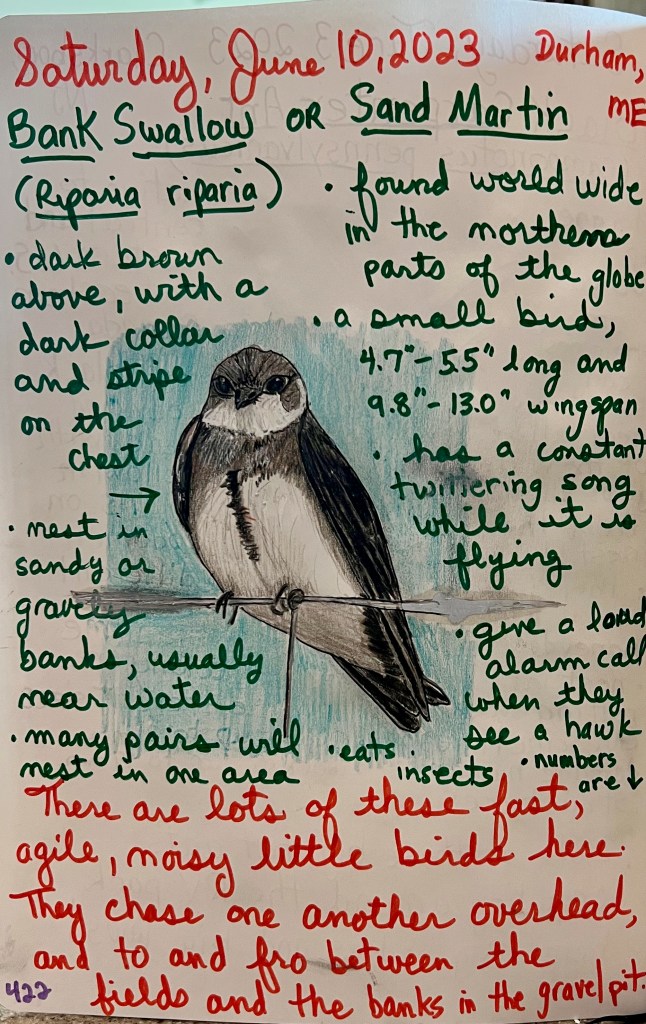 Saturday, June 10, 2023 Durham, ME
Bank Swallow or Sand Martin
(Riparia riparia)
• dark brown
above, with a
dark collar
and stripe
on the
chest
→
• nest in
sandy or
gravely
banks, usually
near water
• many pairs will
nest in one area
• found world wide
in the northern
parts of the globe
• a small bird,
4.7"-5.5" long and
9.8"-13.0" wingspan
• has a constant
twittering song
while it is
flying
• give a loud
alarm call
when they
see a hawk
• eats
insects
• numbers
are ↓
There are lots of these fast,
agile, noisy little birds here.
They chase one another overhead,
and to and fro between the
fields and the banks in the gravel pit.
422